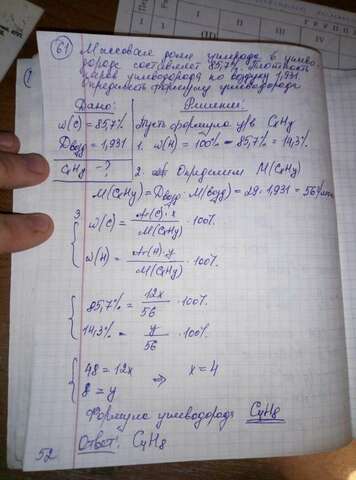 61
Массовая доля углерода в углево-
дороде составляет 85,7%. Плотность
паров углеводорода по воздуху 1,931
определить формулу углеводорода
Дано: Решение:
ω(C) = 85,7% Пусть формула у/в CxHy
Dвозд = 1,931 1. ω(H) = 100% - 85,7% = 14,3%
CxHy - ? 2. Определим M(CxHy)
M(CxHy) = Dвозд · M(возд) = 29 · 1,931 = 56 г/моль
3. ω(C) = Ar(C) · x / M(CxHy) · 100%
ω(H) = Ar(H) · y / M(CxHy) · 100%
85,7% = 12x / 56 · 100%
14,3% = y / 56 · 100%
48 = 12x ⇒ x = 4
8 = y
Формула углеводорода C4H8
Ответ: C4H8
52